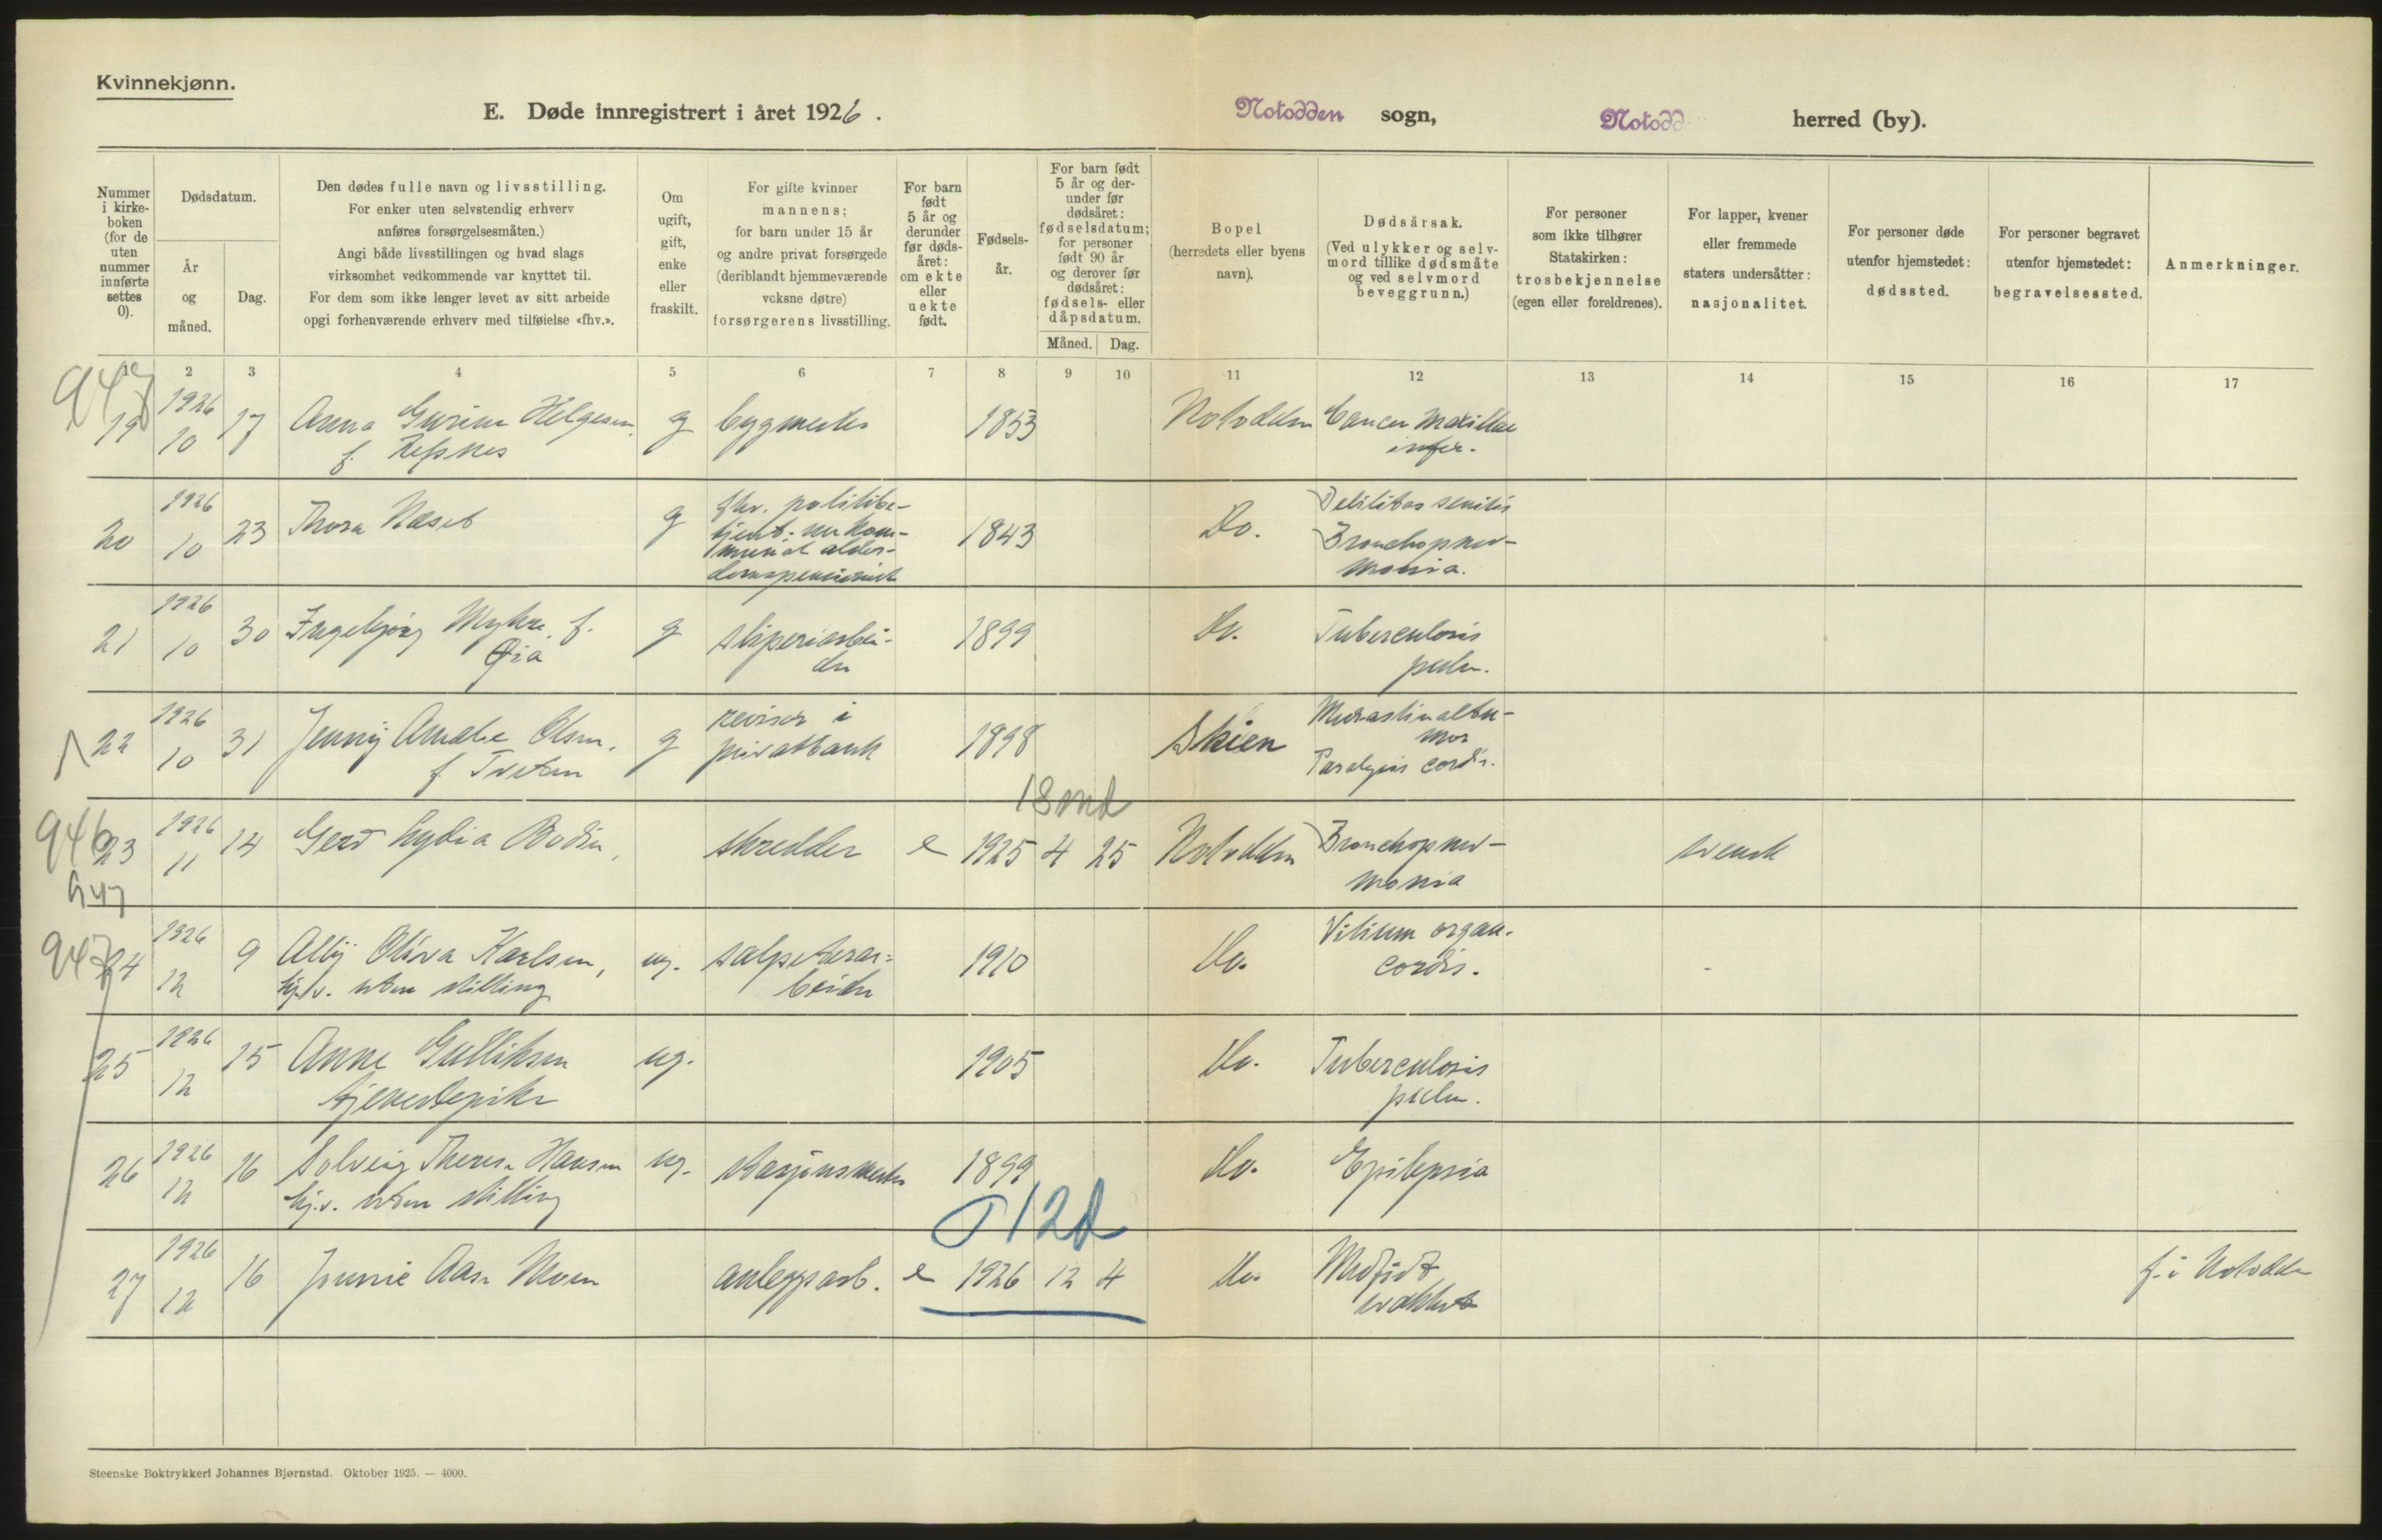 Kvinnekjønn.
E. Døde innregistrert i året 1926.
Notodden sogn,
Notodd herred (by).
Nummer
i kirke-
boken
(for de
uten
nummer
innførte
settes
0).
Dødsdatum.
År
og
måned.
Dag.
Den dødes fulle navn og livsstilling.
For enker uten selvstendig erhverv
anføres forsørgelsesmåten.)
Angi både livsstillingen og hvad slags
virksomhet vedkommende var knyttet til.
For dem som ikke lenger levet av sitt arbeide
opgi forhenværende erhverv med tilføielse «fhv.».
Om
ugift,
gift,
enke
eller
fraskilt.
For gifte kvinner
mannens;
for barn under 15 år
og andre privat forsørgede
(deriblandt hjemmeværende
voksne døtre)
forsørgerens livsstilling.
For barn
født
5 år og
derunder
før døds-
året:
om ekte
eller
uekte
født.
Fødsels-
år.
For barn født
5 år og der-
under før
dødsåret:
fødselsdatum;
for personer
født 90 år
og derover før
dødsåret:
fødsels- eller
dåpsdatum.
Måned. Dag.
Bopel
(herredets eller byens
navn).
Dødsårsak.
(Ved ulykker og selv-
mord tillike dødsmåte
og ved selvmord
beveggrunn.)
For personer
som ikke tilhører
Statskirken:
trosbekjennelse
(egen eller foreldrenes).
For lapper, kvener
eller fremmede
staters undersåtter:
nasjonalitet.
For personer døde
utenfor hjemstedet:
dødssted.
For personer begravet
utenfor hjemstedet:
begravelsessted.
Anmerkninger.
1 2 3 4 5 6 7 8 9 10 11 12 13 14 15 16 17
947
19 1926 10 17 Anna Gurine Helgesen, g bygmester 1853 Notodden Cancer maxillae
f. Refsnes infer.
20 1926 10 23 Thora Næset g fhv. politibe-
tjent. nu kom-
munal alder-
domspensionist 1843 Do. Debilitas senilis
Bronchopneu-
monia.
21 1926 10 30 Ingebjørg Myhre f. g sliperiarbei-
der 1899 Do. Tuberculosis
pulm.
22 1926 10 31 Jenny Amalie Olsen, g revisor i
f. Tveten privatbank 1898 Skien
Paralysis cordis.
18 md
946
23 1926 11 14 Gerd Lydia Bodin, skredder e 1925 4 25 Notodden Bronchopneu-
monia svensk
947
947
24 1926 12 9 Ally Oliva Karlsen, ug. salpeterar-
hj.v. uten stilling beider 1910 Do. Vitium organ.
cordis.
25 1926 12 15 Anne Gulliksen ug. 1905 Do. Tuberculosis
tjenestepike pulm.
26 1926 12 16 Solveig Theresa Hansen ug. stasjonsmester 1899 Do. Epilepsia
hj.v. uten stilling
12d
27 1926 12 16 Jennie Aase Moen anleggsarb. e 1926 12 4 Do. Medfødt
svakhet f. i Notodden
Steenske Boktrykkeri Johannes Bjørnstad. Oktober 1925. — 4000.